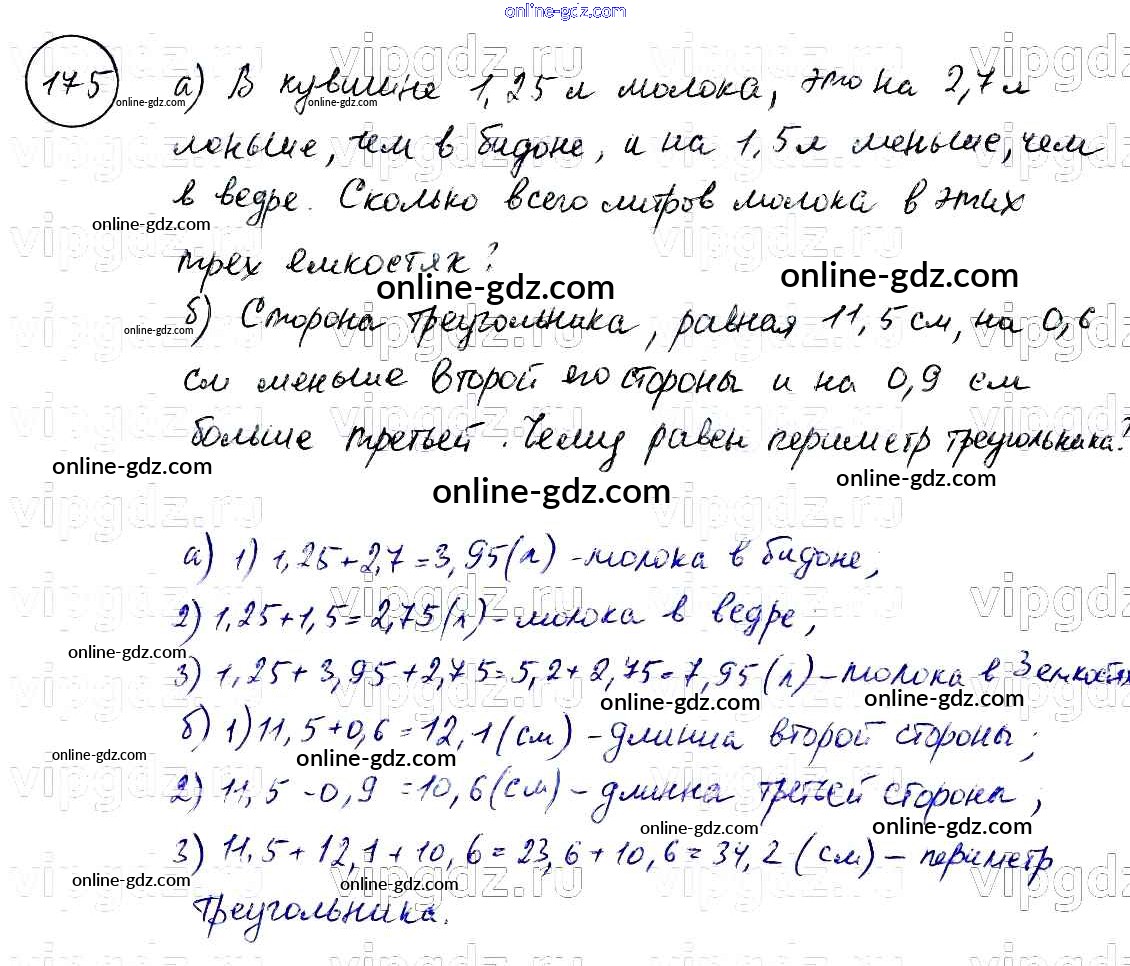 online-gdz.com
175 а) В кувшине 1,25 л молока, это на 2,7 л
меньше, чем в бидоне, и на 1,5 л меньше, чем
в ведре. Сколько всего литров молока в этих
трех емкостях?
б) Сторона треугольника, равная 11,5 см, на 0,6
см меньше второй его стороны и на 0,9 см
больше третьей. Чему равен периметр треугольника?
а) 1) 1,25+2,7=3,95(л) -молока в бидоне;
2) 1,25+1,5=2,75(л)-молока в ведре;
3) 1,25+3,95+2,75=5,2+2,75=7,95(л)-молока в 3 емкостях
б) 1) 11,5+0,6=12,1(см)-длинна второй стороны;
2) 11,5-0,9=10,6(см)-длинна третьей сторона;
3) 11,5+12,1+10,6=23,6+10,6=34,2(см)-периметр
треугольника.